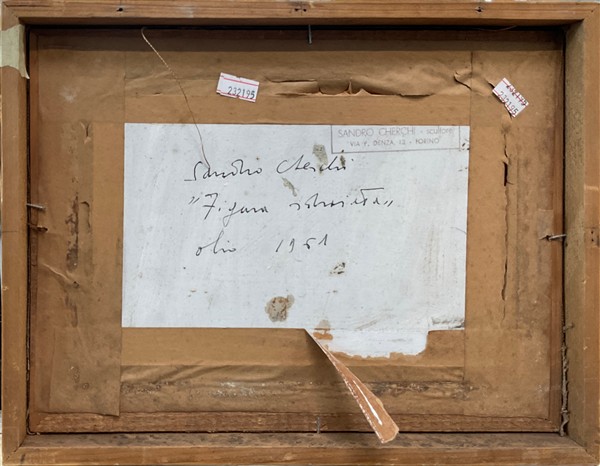 232195
232195
SANDRO CHERCHI - scultore
VIA F. DENZA, 12 - TORINO
Sandro Cherchi
"Figura sdraiata"
olio 1961